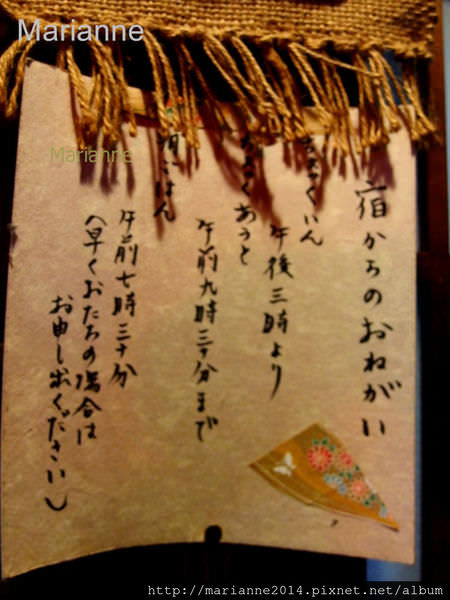 Marianne
Marianne
宿からのおねがい
ちぇっくいん
午後三時より
ちぇっくあうと
午前九時三十分まで
朝ごはん
午前七時三十分
(早くおたちの場合は
お申し出ください)
http://marianne2014.pixnet.net/album